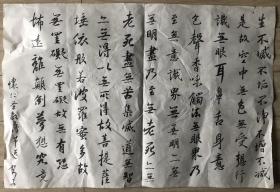 生不滅不垢不净不增不減
是故空中無色無受想行
識無眼耳鼻舌身意無
色聲香味觸法無眼界乃
至無意識界無無明亦無
無明盡乃至無老死亦無
老死盡無苦集滅道無智
亦無得以無所得故菩提薩
埵依般若波羅密多故
無罣礙無罣礙故無有恐
怖遠離顛倒夢想究竟